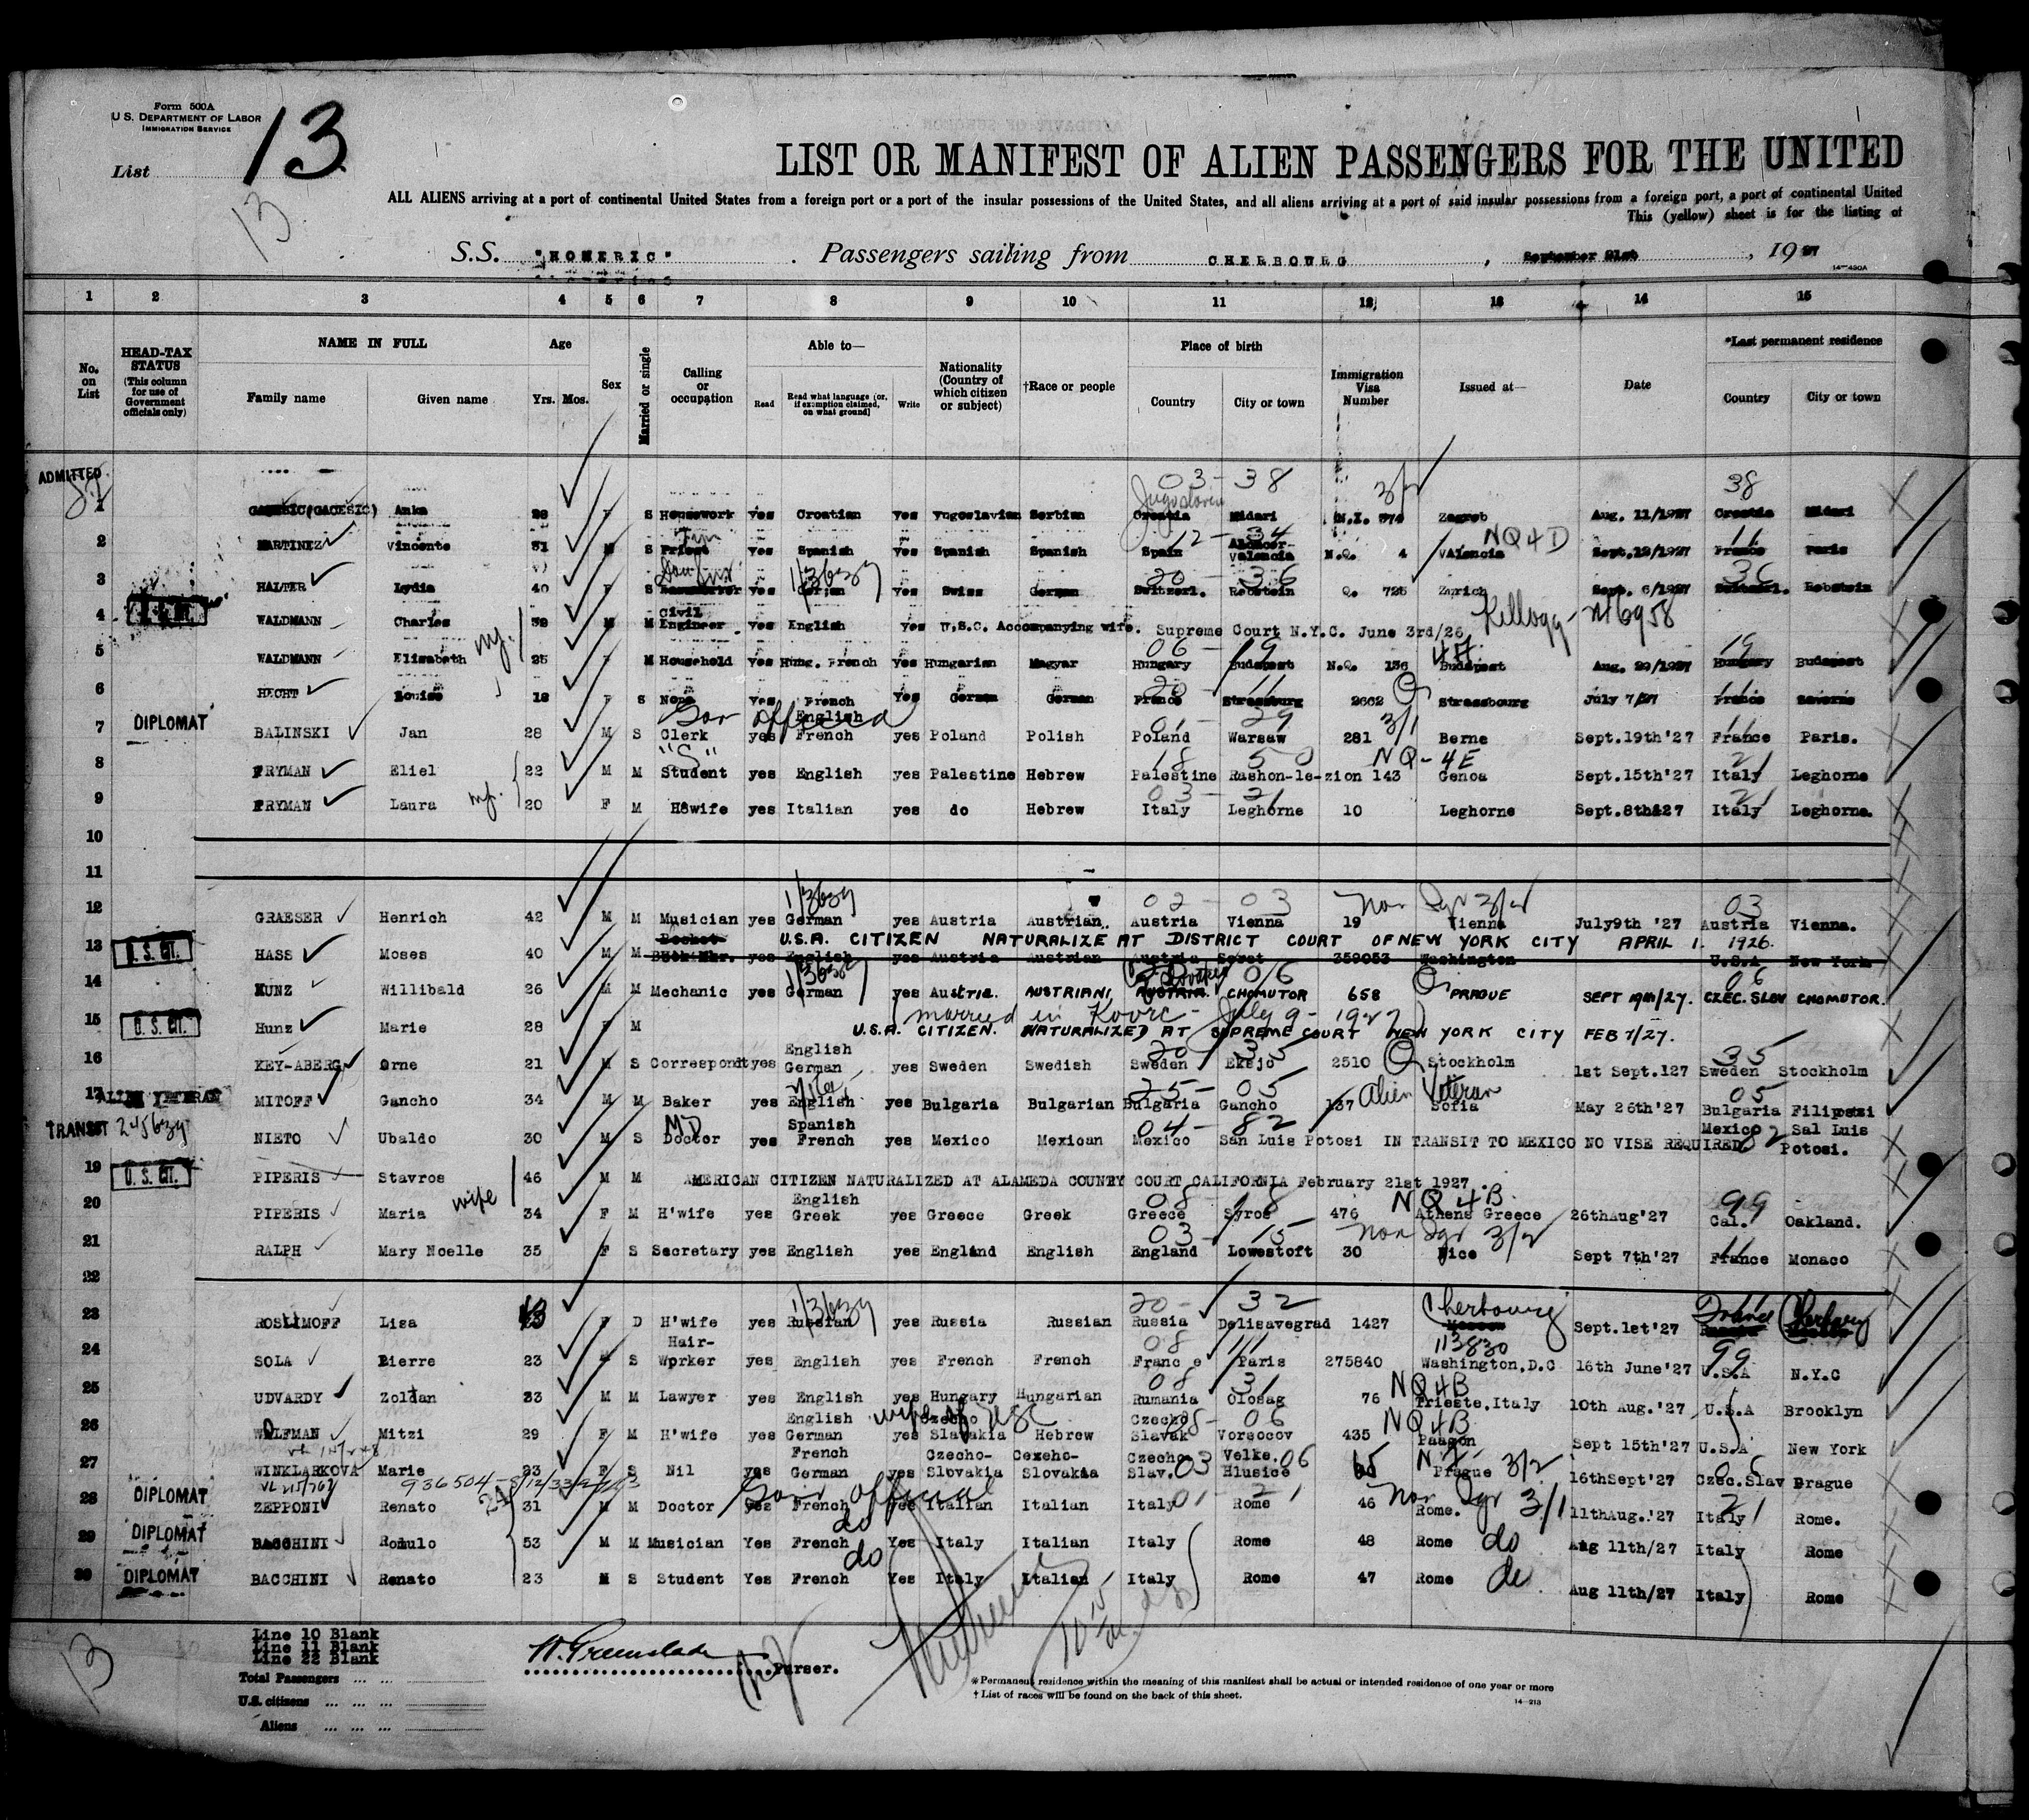 Form 500A
U. S. DEPARTMENT OF LABOR
IMMIGRATION SERVICE
List 13
13
LIST OR MANIFEST OF ALIEN PASSENGERS FOR THE UNITED
ALL ALIENS arriving at a port of continental United States from a foreign port or a port of the insular possessions of the United States, and all aliens arriving at a port of said insular possessions from a foreign port, a port of continental United
This (yellow) sheet is for the listing of
S.S. "HOMERIC" . Passengers sailing from CHERBOURG , September 21st , 1927
14—430A
1 2 3 4 5 6 7 8 9 10 11 12 13 14 15
No. on List
HEAD-TAX STATUS (This column for use of Government officials only)
NAME IN FULL Family name Given name
Age Yrs. Mos.
Sex
Married or single
Calling or occupation
Able to— Read Read what language [or, if exemption claimed, on what ground] Write
Nationality (Country of which citizen or subject)
†Race or people
Place of birth Country City or town
Immigration Visa Number
Issued at—
Date
*Last permanent residence Country City or town
ADMITTED
03 - 38 3/2 38
Jugoslavia
1 (GACESIC) Anka 28 F S Housework yes Croatian yes Yugoslavian Serbian Croatia Midari N.I. 574 Zagreb Aug. 11/1927 Croatia Midari
12 - 34 NQ4D 11
2 MARTINEZ Vincente 31 M S Priest yes Spanish yes Spanish Spanish Spain Valencia N.Q. 4 Valencia Sept.12/1927 France Paris
1/3639 20 - 36 36
3 HALTER Lydia 40 F S yes German yes Swiss German Switzerl. Rebstein Q. 725 Zurich Sept. 6/1927 Switzerl. Rebstein
4 WALDMANN Charles 39 M M Civil Engineer yes English yes U.S.C. Accompanying wife. Supreme Court N.Y.C. June 3rd/26 Kellogg
06 - 19 19
5 WALDMANN Elisabeth 25 F M Household yes Hung. French yes Hungarian Magyar Hungary Budapest N.Q. 136 Budapest Aug. 29/1927 Hungary Budapest
20 - 11 Q 11
6 HECHT Louise 18 F S None yes French Yes German German France Strassburg 2662 Strassbourg July 7/27 France Saverne
Gov official 01 - 29 3/1 11
7 DIPLOMAT BALINSKI Jan 28 M S Clerk yes English French yes Poland Polish Poland Warsaw 281 Berne Sept.19th'27 France Paris.
"S" 18 50 NQ-4E 21
8 FRYMAN Eliel 22 M M Student yes English yes Palestine Hebrew Palestine Rashon-le-zion 143 Genoa Sept.15th'27 Italy Leghorne
03 - 21 21
9 FRYMAN Laura 20 F M H8wife yes Italian yes do Hebrew Italy Leghorne 10 Leghorne Sept.8th&27 Italy Leghorne.
10
11
1/3639 02 - 03 Non Igr 3/2 03
12 GRAESER Henrich 42 M M Musician yes German yes Austria Austrian. Austria Vienna 19 Vienna July9th '27 Austria Vienna.
U.S.A. CITIZEN NATURALIZE AT DISTRICT COURT OF NEW YORK CITY APRIL 1. 1926.
13 U. S. CIT. HASS Moses 40 M M yes English yes Austria Austrian Austria 359053 Washington U.S.A New York
06 Q 06
14 KUNZ Willibald 26 M M Mechanic yes German yes Austria. AUSTRIAN AUSTRIA. CHOMUTOR 658 PRAGUE SEPT 19th/27. CZEC.SLAV CHOMUTOR.
married in July 9 - 1927
15 U. S. CIT. Hunz Marie 28 F M U.S.A. CITIZEN. NATURALIZED AT SUPREME COURT NEW YORK CITY FEB 7/27.
20 - 35 Q 35
16 KEY-ABERG Orne 21 M S Correspondt yes English German yes Sweden Swedish Sweden Eksjo 2510 Stockholm 1st Sept.127 Sweden Stockholm
25 - 05 Alien Veteran 05
17 ALIEN VETERAN MITOFF Gancho 34 M M Baker yes English yes Bulgaria Bulgarian Bulgaria Gancho 137 Sofia May 26th'27 Bulgaria
MD 04 - 82
TRANSIT 245639 NIETO Ubaldo 30 M S Doctor yes Spanish French yes Mexico Mexican Mexico San Luis Potosi IN TRANSIT TO MEXICO NO VISE REQUIRED. Mexico Sal Luis Potosi.
19 U. S. CIT. PIPERIS Stavros 46 M M AMERICAN CITIZEN NATURALIZED AT ALAMEDA COUNTY COURT CALIFORNIA February 21st 1927.
wife 08 - 18 NQ4B 99
20 PIPERIS Maria 34 F M H'wife yes English Greek yes Greece Greek Greece Syros 476 Athens Greece 26thAug'27 Cal. Oakland.
03 - 15 Non Igr 3/2 11
21 RALPH Mary Noelle 35 F S Secretary yes English yes England English England Lowestoft 30 Nice Sept 7th'27 France Monaco
22
1/3/639 20 - 32 Cherbourg France Cherbourg
23 ROSLIMOFF Lisa 43 F D H'wife yes Russian yes Russia Russian Russia Delisavegrad 1427 Sept.1st'27
08 11 113830 99
24 SOLA Pierre 23 M S Hair-Worker yes English yes French French France Paris 275840 Washington,D.C 16th June'27 U.S.A N.Y.C
08 31 NQ4B
25 UDVARDY Zoltan 33 M M Lawyer yes English yes Hungary Hungarian Rumania Olosag 76 Trieste,Italy 10th Aug.'27 U.S.A Brooklyn
wife of USC 06 NQ4B
26 WOLFMAN Mitzi 29 F M H'wife yes English German yes Czecho Slavakia Hebrew Czecho Slavak Vorsocov 435 Sept 15th'27 U.S.A New York
03 06 3/2 06
27 WINKLARKOVA Marie 23 F S Nil yes French German yes Czecho-Slovakia Cexeho-Slovakia Czecho Slav. Velke. Hlusice Prague 16thSept'27 Czec.Slav Prague
936504-
Gov official 01 - 21 Non Igr 3/1 21
28 DIPLOMAT ZEPPONI Renato 31 M M Doctor yes French yes Italian Italian Italy Rome 46 Rome. 11thAug.'27 Italy Rome.
do
29 DIPLOMAT BACCHINI Romulo 53 M M Musician Yes French Yes Italy Italian Italy Rome 48 Rome do Aug 11th/27 Italy Rome
do
30 DIPLOMAT BACCHINI Renato 23 M S Student Yes French Yes Italy Italian Italy Rome 47 Rome do Aug 11th/27 Italy Rome
13
Line 10 Blank
Line 11 Blank
Line 22 Blank
Total Passengers
U.S. citizens
Aliens
W. Greenslade
Purser.
*Permanent residence within the meaning of this manifest shall be actual or intended residence of one year or more
†List of races will be found on the back of this sheet.
14—213